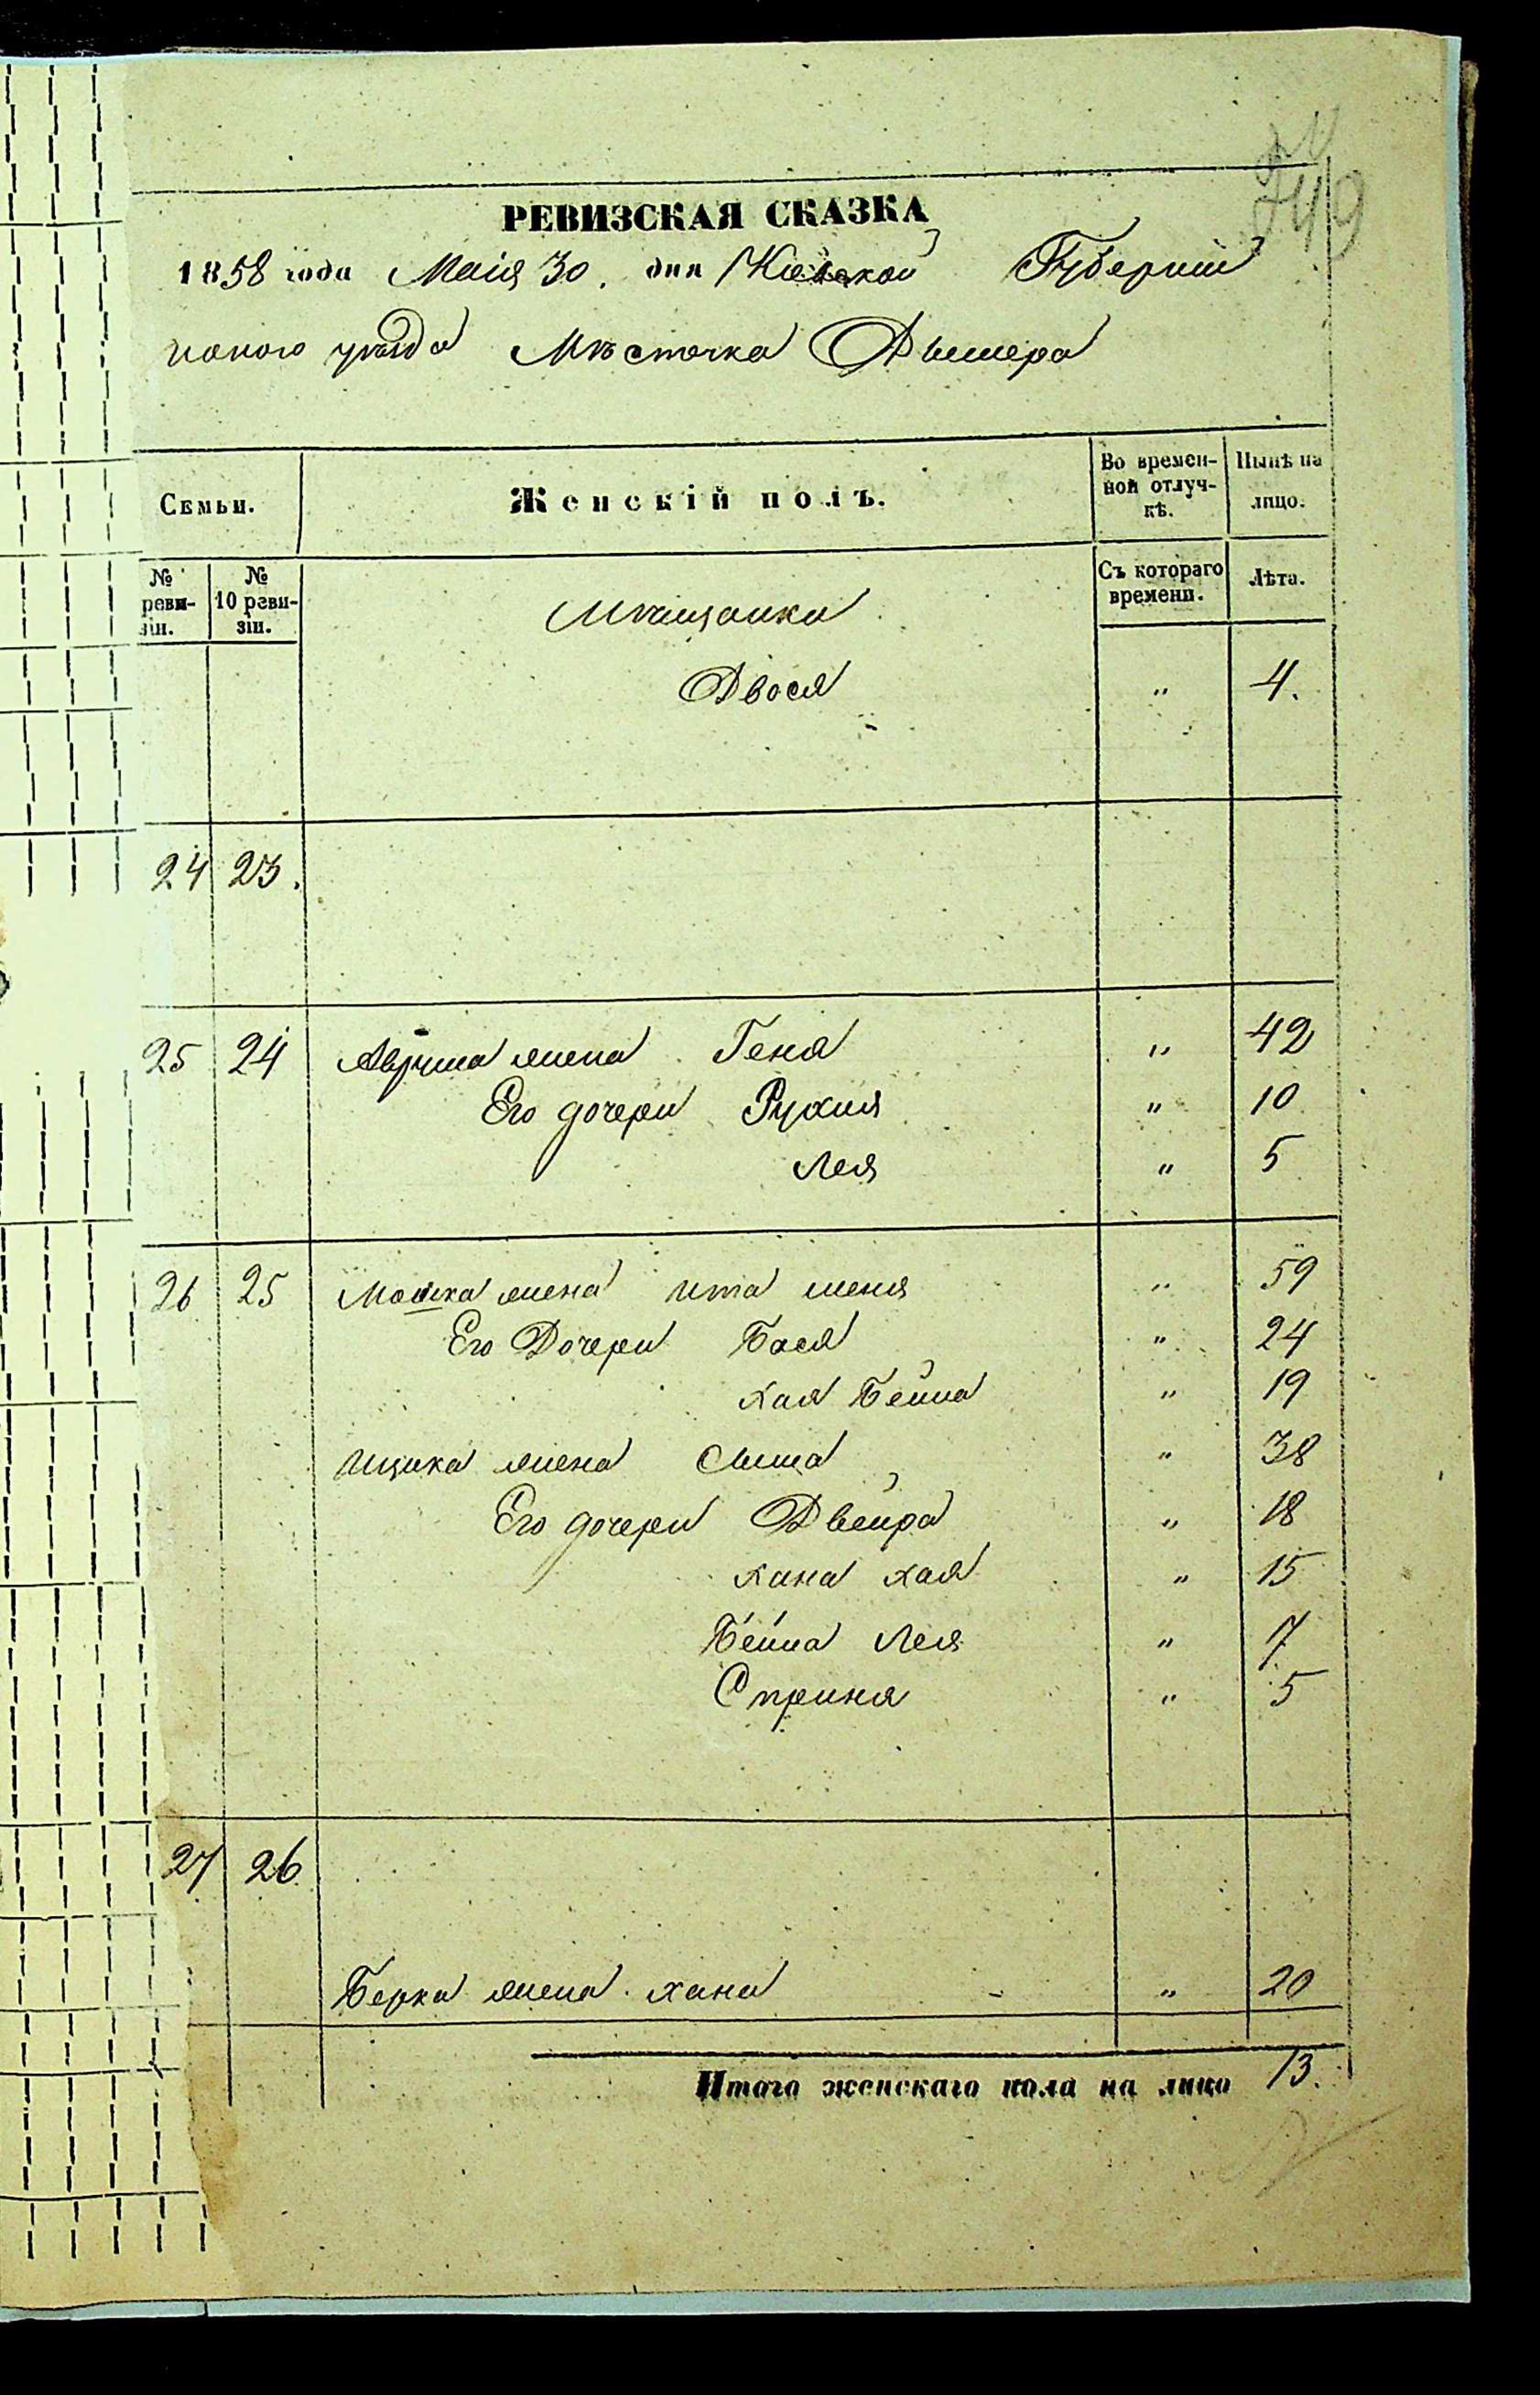 749
РЕВИЗСКАЯ СКАЗКА
1858 года Маія 30. дня Кіевской Губерніи
наго уѣзда Мѣстечка Дымера
Семьи. Женскій полъ. Во времен-ной отлуч-кѣ. Нынѣ на лицо.
№ реви-зіи. № 10 реви-зіи. Мѣщанки Съ котораго времени. Лѣта.
Двося " 4.
24 23.
25 24 Аврума жена Геня " 42
Его дочери Рухля " 10
Лея " 5
26 25 Мошка жена Ита шеня " 59
Его Дочери Бася " 24
хая Бейла " 19
Ицика жена Сима " 38
Его дочери Двейра " 18
хана хая " 15
Бейла Лея " 7
Сприня " 5
27 26
Берка жена хана " 20
Итого женскаго пола на лицо 13.